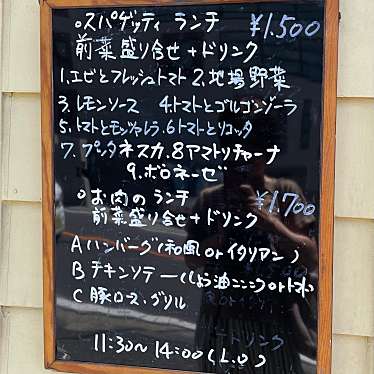 ○スパゲッティ ランチ ¥1.500
前菜盛り合せ+ドリンク
1.エビとフレッシュトマト 2.地場野菜
3.レモンソース 4トマトとゴルゴンゾーラ
5.トマトとモッツァレラ.6トマトとリコッタ
7.プッタネスカ.8アマトリチャーナ
9.ボロネーゼ
○お肉のランチ ¥1.700
前菜盛り合せ+ドリンク
Aハンバーグ(和風orイタリアン)
Bチキンソテー(しょう油ニンニクorトマト)
C 豚ロース.グリル
11:30〜14:00(L.O)